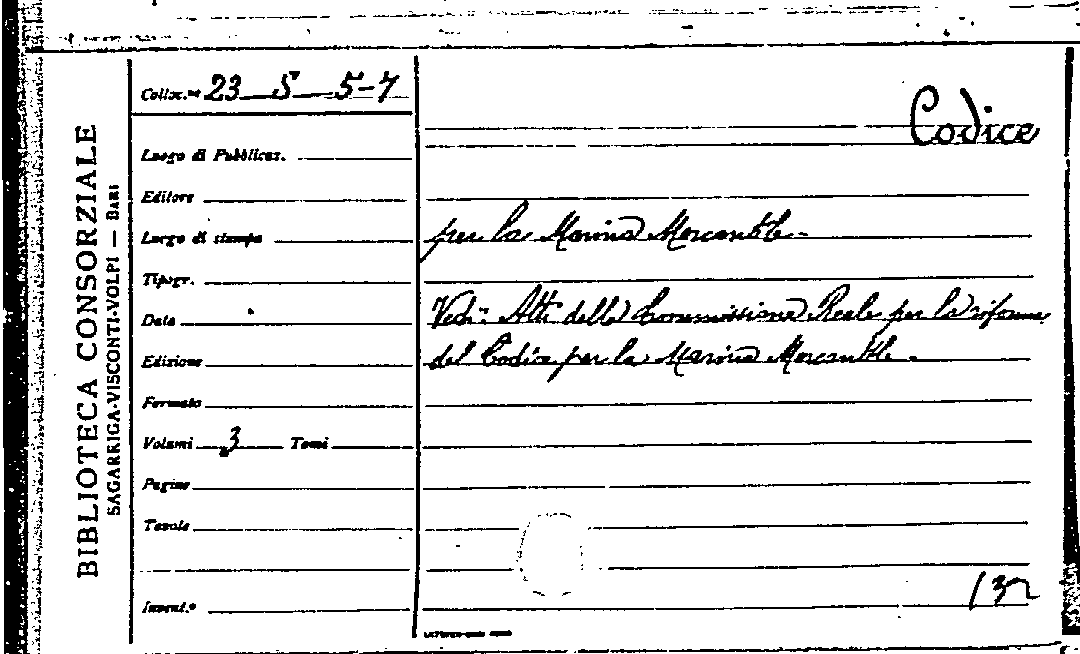 BIBLIOTECA CONSORZIALE
SAGARRIGA-VISCONTI-VOLPI — BARI
Colloc.ne 23 S 5-7
Luogo di Pubblicaz.
Editore
Luogo di stampa
Tipogr.
Data
Edizione
Formato
Volumi 3 Tomi
Pagine
Tavole
Invent.º
Codice
per la Marina Mercantile.
Vedi: Atti della Commissione Reale per la riforma
del Codice per la Marina Mercantile.
132